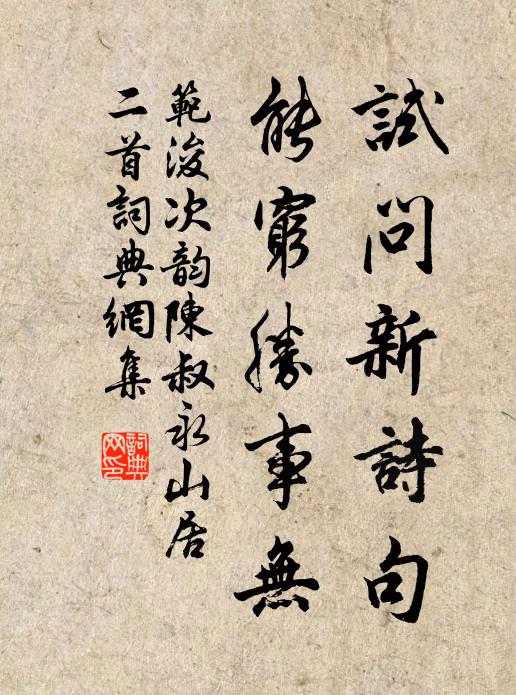 試問新詩句
能窮勝事無
範浚次韵陳叔永山居
二首詞典網集
詞典
网印